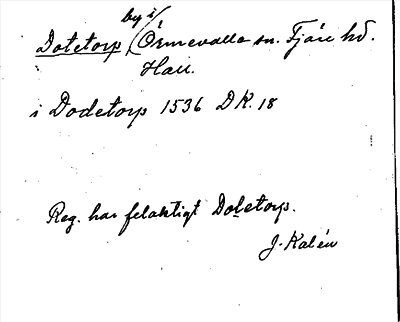 by i/
Dotetorp, Örmevalla sn. Fjäre hd.
Hall.
i Dodetorp 1536 DK. 18
Reg. har felaktigt Doletorp.
J. Kalén